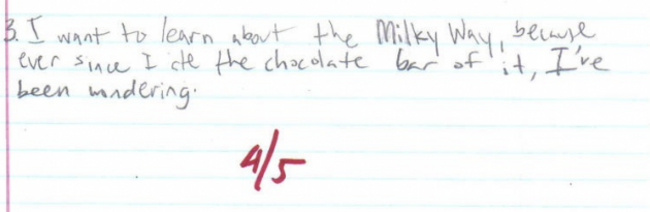 3. I want to learn about the Milky Way, because
ever since I ate the chocolate bar of it, I've
been wondering.
4/5